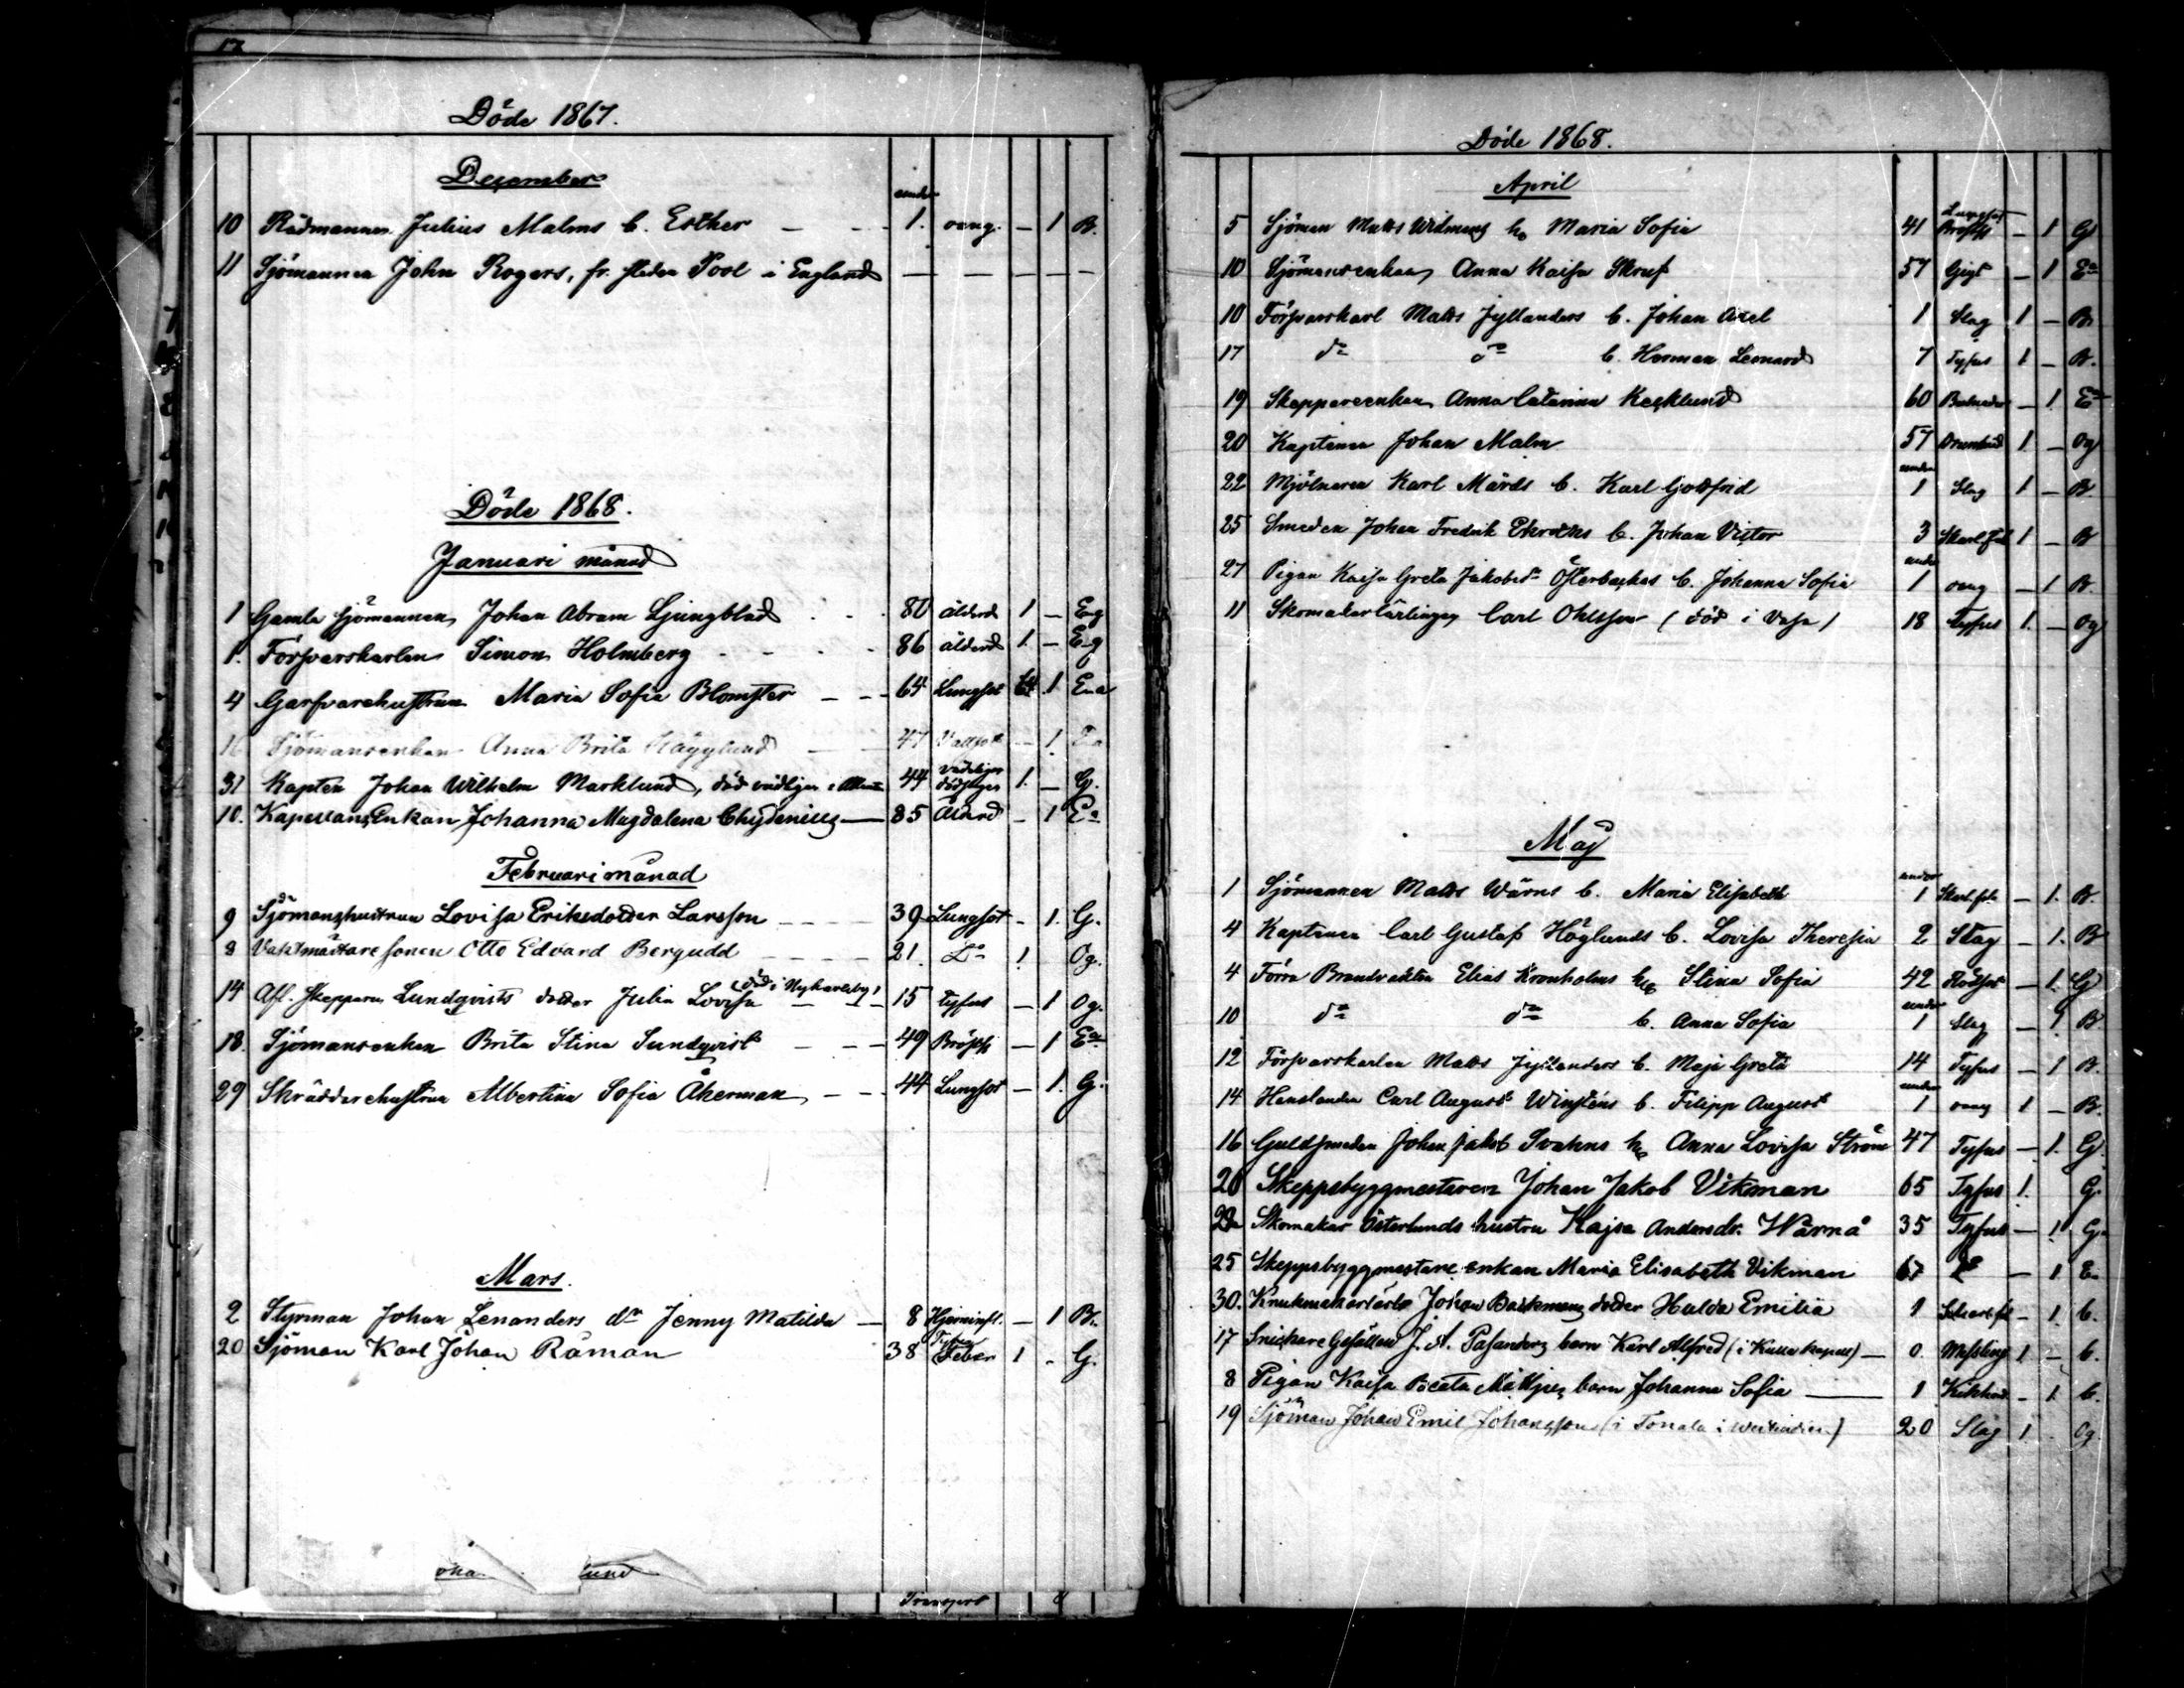 17
Döde 1867.
Dezember
under
10 Rådmannen Julius Malms b. Esther — - - 1. oang. — 1 B.
11 Sjömannen John Rogers, fr. staden Pool i England — — — — —
Döde 1868.
Januari månad
1 Gamla sjömannen Johan Abram Ljungblad - - - 80 ålderd 1 — Eg
1. Försvarskarlen Simon Holmberg - - - - 86 ålderd 1. — Eg
4 Garfvarehustrun Maria Sofia Blomster — - - 64 Lungsot 1 Ea
16 Sjömansenkan Anna Brita Hägglund — 47 Vattsot — 1. Ea
31 Kapten Johan Wilhelm Marklund, död vådligen i 44 vådligen dödsligen 1. — G.
10. Kapellans Enkan Johanna Magdalena Chydenius — 85 Ålderd — 1 Ea
Februari månad
9 Sjömanshustrun Lovisa Eriksdotter Larsson - - - - 39 Lungsot - 1. G.
9 Vaktmästare sonen Otto Edvard Bergudd - - - - 21. Do 1 Og.
(död i Nykarleby)
14 Afl. Skepparen Lundqvists dotter Julia Lovisa — - - 15 Tyfus — 1 Og.
18. Sjömansenkan Brita Stina Sundqvist — - - 49 Bröstsj — 1 Ea
29 Skräddarehustrun Albertina Sofia Åkerman - - - 44 Lungsot — 1. G.
Mars.
2 Styrman Johan Lenanders dr Jenny Matilda — 8 Hjerninfl. — 1 B.
20 Sjöman Karl Johan Råman 38 Tyfus Feber 1 - G.
oha lund
Transport 8
Döde 1868.
April
5 Sjöman Matts Widmans h. Maria Sofia 41 Lungsot Bröstsj — 1 G
10 Sjömansenkan Anna Kaisa Skruf 57 Gigt — 1 Ea
10 Försvarskarl Matts Jyllanders b. Johan Axel 1 Slag 1 — B.
17 do do b. Herman Leonard 7 Tyfus 1 — B.
19 Skeppareenkan Anna Catarina Kecklund 60 — 1 Ea
20 Kaptenen Johan Malm 57 1 — Og
under
22 Mjölnaren Karl Mårds b. Karl Gottfrid 1 Slag 1 — B
25 Smeden Johan Fredrik b. Johan Victor 3 Skarl.feb 1 — B
under
27 Pigan Kaisa Greta Jakobsdr Österbackas b. Johanna Sofia 1 oang — 1 B.
11 Skomakarlärlingen Carl Ohlsson (död i Vasa) 18 Tyfus 1. — Og
Maj
under
1 Sjömannen Matts Wärns b. Maria Elisabeth 1 Skarl.feb. — 1. B.
4 Kaptenen Carl Gustaf Höglunds b. Lovisa Theresia 2 Slag — 1. B
4 Förra Brandvakten Elias Kronholms h. Stina Sofia 42 — 1. G
under
10 do do b. Anna Sofia 1 Slag — 1 B
12 Försvarskarlen Matts Jyllanders b. Maja Greta 14 Tyfus — 1 B.
under
14 Carl August Winsténs b. Filipp August 1 oang 1 — B.
16 Guldsmeden Johan Jakob Svahns h. Anna Lovisa Ström 47 Tyfus — 1. G.
20 Skeppsbyggmesteren Johan Jakob Vikman 65 Tyfus 1. G.
Skomakar Österlunds hustru Kajsa Andersdr. Wärnå 35 Tyfus — 1 G.
25 Skeppsbyggmestare enkan Maria Elisabeth Vikman 67 Do — 1 E.
30. Johan Backmans dotter Hulda Emilia 1 Skarl.feb — 1. b.
17 Snickare Gesällen J. A. Pasanders barn Karl Alfred (i Kulla kapell) — 0. Messling 1 — b.
8 Pigan Kaisa Beata barn Johanna Sofia — 1 Kikhost — 1. b.
19 Sjöman Johan Emil Johansson (i Tonala i Westindien) 20 Slag 1 Og